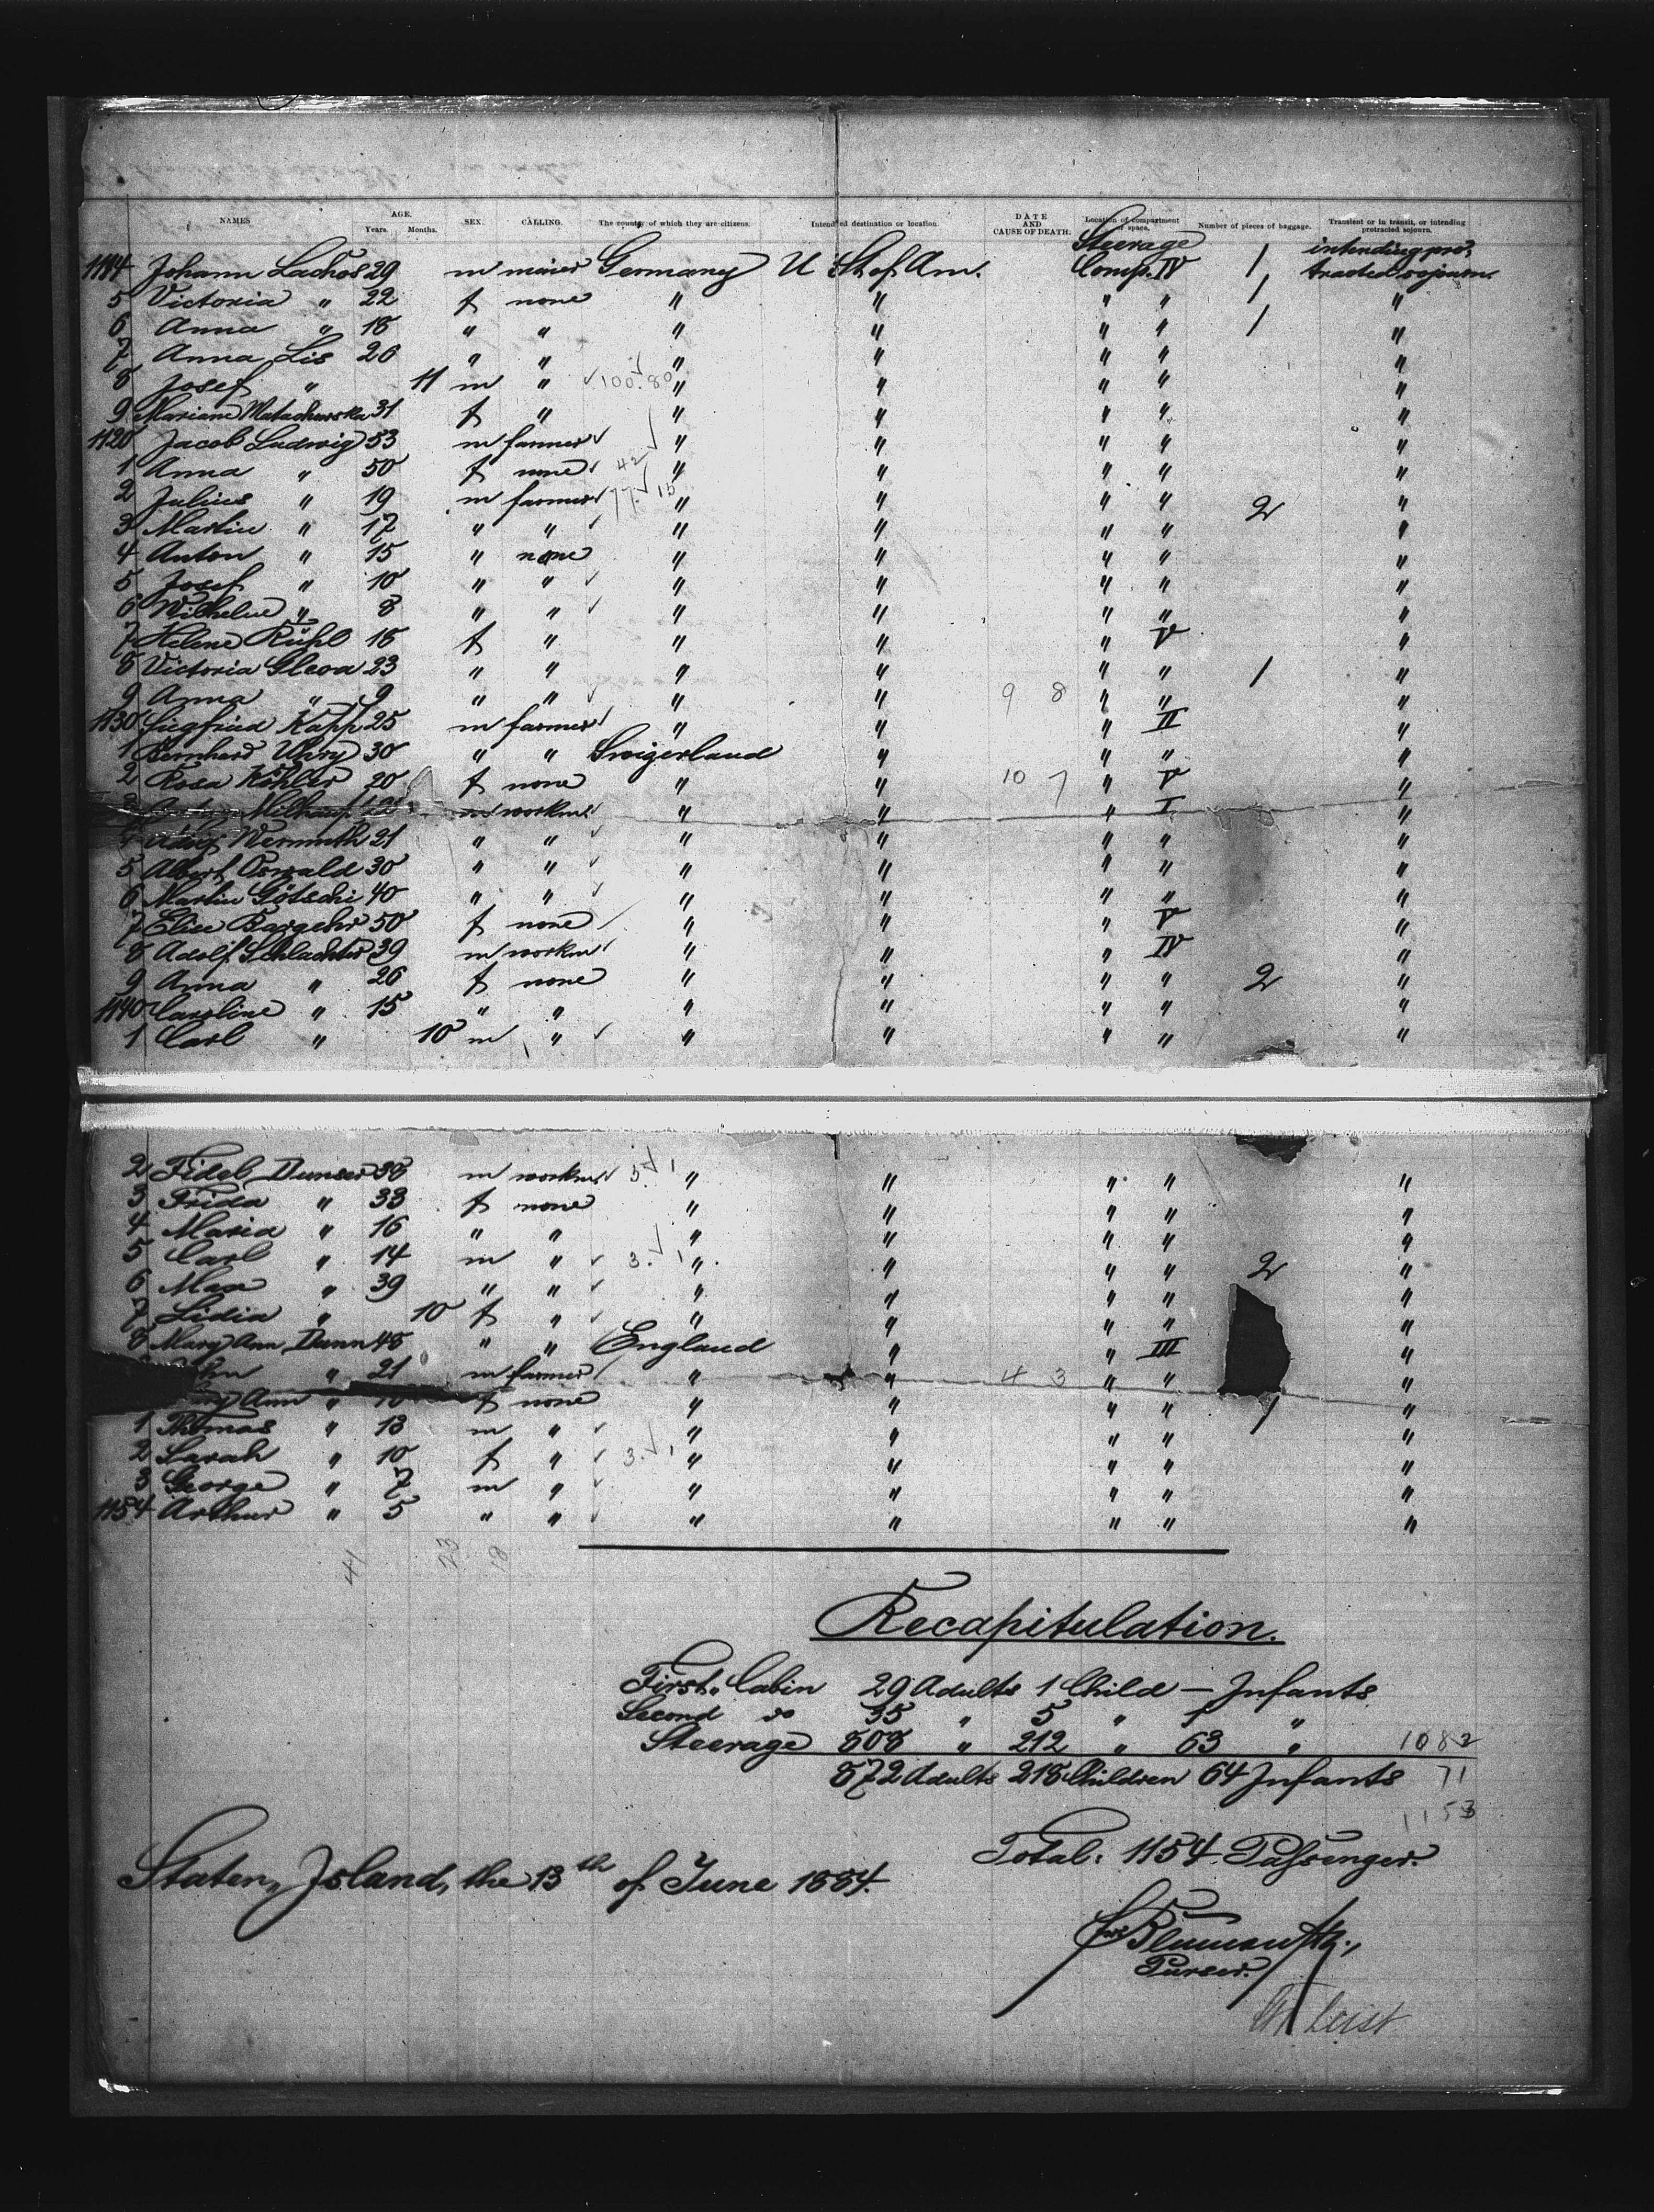 NAMES AGE. Years. Months. SEX. CALLING. The country of which they are citizens. Intended destination or location. DATE AND CAUSE OF DEATH. Location of compartment or space. Number of pieces of baggage. Transient or in transit, or intending protracted sojourn.
1114 Johann Lachos 29 m Germany U St. of Am. Steerage Comp. IV 1 intending protracted sojourn.
5 Victoria " 22 f none " " " " 1 "
6 Anna " 18 " " " " " " 1 "
7 Anna Lis 26 " " " " " " "
8 Josef " 11 m " 100. 80 " " " " "
9 Mariane 31 f " " " " " "
1120 Jacob Ludwig 53 m farmer " " " " "
1 Anna " 50 f none 42 " " " " "
2 Julius " 19 m farmer 77. 15 " " " " 2 "
3 Martin " 17 " " " " " " "
4 Anton " 15 " none " " " " "
5 Josef " 10 " " " " " " "
6 Wilhelm " 8 " " " " " " "
7 Helene Rühl 18 f " " " " V "
8 Victoria Glewa 23 " " " " " " 1 "
9 Anna " 9 " " " " 9 8 " " "
1130 Siegfried Kapp 25 m farmer " " " II "
1 Bernhard Uhry 30 " " Swigerland " " " "
2 Rosa Köhler 20 f none " " 10 7 " V "
3 Milhaupt 22 m workm. " " " I "
4 Wermuth 21 " " " " " " "
5 Albert Oswald 30 " " " " " " "
6 Martin Götschi 40 " " " " " " "
7 Elise Bargehr 50 f none " " " V "
8 Adolf Schlachter 39 m workm " " " IV "
9 Anna " 26 f none " " " " 2 "
1140 Caroline " 15 " " " " " " "
1 Carl " 10 m " " " " " "
2 Fidel Dunser 38 m workm. 3. 1 " " " " "
3 Frida " 33 f none " " " " "
4 Maria " 16 " " " " " " "
5 Carl " 14 m " 3. 1 " " " " 2 "
6 Max " 39 " " " " " " "
7 Lidia " 10 f " " " " " "
8 Mary Ann Dunn 48 " " England " " III "
" 21 m farmer " " 4 3 " " "
Ann " f none " " " " 1 "
1 Thomas " 13 m " " " " " "
2 Sarah " 10 f " 3. 1 " " " " "
3 George " 7 m " " " " " "
1154 Arthur " 5 " " " " " " "
41 23 18
Recapitulation.
First Cabin 29 Adults 1 Child — Infants
Second do 35 " 5 " 1 "
Steerage 808 " 212 " 63 " 1082
872 Adults 218 Children 64 Infants 71
1153
Total: 1154 Passenger.
Staten Island, the 13th of June 1884.
Purser.